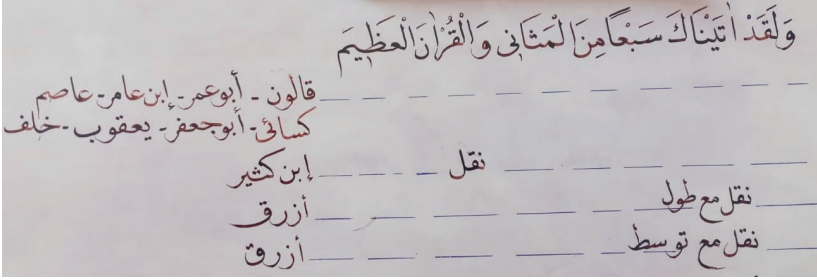 وَلَقَدْ اٰتَيْنَاكَ سَبْعًا مِنَ الْمَثَانٖى وَالْقُرْاٰنَ الْعَظٖيمَ
قالون - أبوعمر - إبن عامر - عاصم
كسائى - أبوجعفر - يعقوب - خلف
نقل إبن كثير
نقل مع طول أزرق
نقل مع توسط أزرق